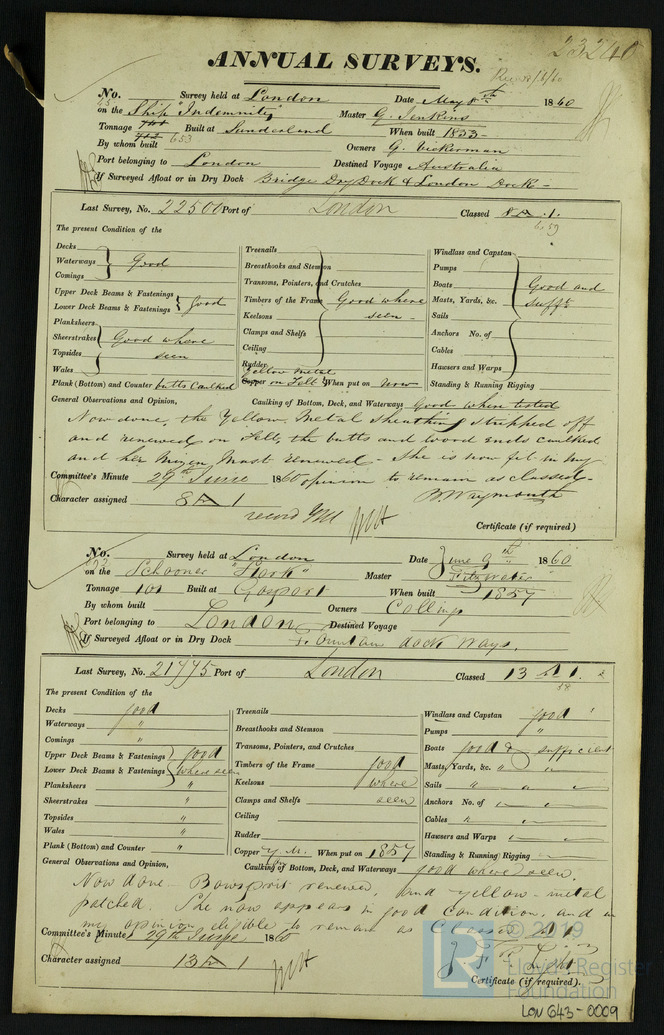 23240
ANNUAL SURVEYS.
No. Survey held at London Date May 8th 1860
on the Ship "Indemnity" Master G. Jenkins
Tonnage 653 Built at Sunderland When built 1853
By whom built Owners G. Vickerman
Port belonging to London Destined Voyage Australia
If Surveyed Afloat or in Dry Dock Bridge Dry Dock & London Dock
Last Survey, No. 22500 Port of London Classed 8 A .1.
6.59
The present Condition of the
Decks
Waterways Good
Comings
Upper Deck Beams & Fastenings
Lower Deck Beams & Fastenings Good
Planksheers
Sheerstrakes Good where
Topsides seen
Wales
Plank (Bottom) and Counter butts Caulked
Treenails
Breasthooks and Stemson
Transoms, Pointers, and Crutches
Timbers of the Frame Good where
Keelsons seen
Clamps and Shelfs
Ceiling
Rudder
Yellow Metal
Copper on Felt When put on now
Windlass and Capstan
Pumps
Boats Good and
Masts, Yards, &c. Sufft
Sails
Anchors No. of
Cables
Hawsers and Warps
Standing & Running Rigging
General Observations and Opinion, Caulking of Bottom, Deck, and Waterways Good when tested
Now done, the Yellow Metal Sheathing stripped off
and renewed on Felt, the butts and wood ends caulked
and her Mizen Mast renewed - She is now fit in my
Committee's Minute 29th June 1860 opinion to remain as classed.
B. Waymouth
Character assigned 8 A 1
record YM
Certificate (if required)
No. Survey held at London Date June 9th 1860
on the Schooner "Hark" Master Fitzwater
Tonnage 101 Built at Gosport When built 1857
By whom built Owners Collings
Port belonging to London Destined Voyage
If Surveyed Afloat or in Dry Dock Fountain dock ways.
Last Survey, No. 21775 Port of London Classed 13 A 1.
58
The present Condition of the
Decks good
Waterways "
Comings "
Upper Deck Beams & Fastenings good
Lower Deck Beams & Fastenings where seen
Planksheers "
Sheerstrakes "
Topsides "
Wales "
Plank (Bottom) and Counter "
Treenails
Breasthooks and Stemson
Transoms, Pointers, and Crutches
Timbers of the Frame good
Keelsons where
Clamps and Shelfs seen
Ceiling
Rudder
Copper Y.M. When put on 1857
Windlass and Capstan good
Pumps "
Boats good & sufficient
Masts, Yards, &c. " "
Sails " " "
Anchors No. of " " "
Cables " " "
Hawsers and Warps " "
Standing & Running Rigging "
General Observations and Opinion, Caulking of Bottom, Deck, and Waterways good where seen.
Now done Bowsprit renewed, and yellow-metal
patched. She now appears in good condition, and in
my opinion eligible to remain as Classed
Committee's Minute 29th June 1860
Character assigned 13 A 1
Certificate (if required).
© 2019
LR
Lloyd's Register
Foundation
LON 643-0009